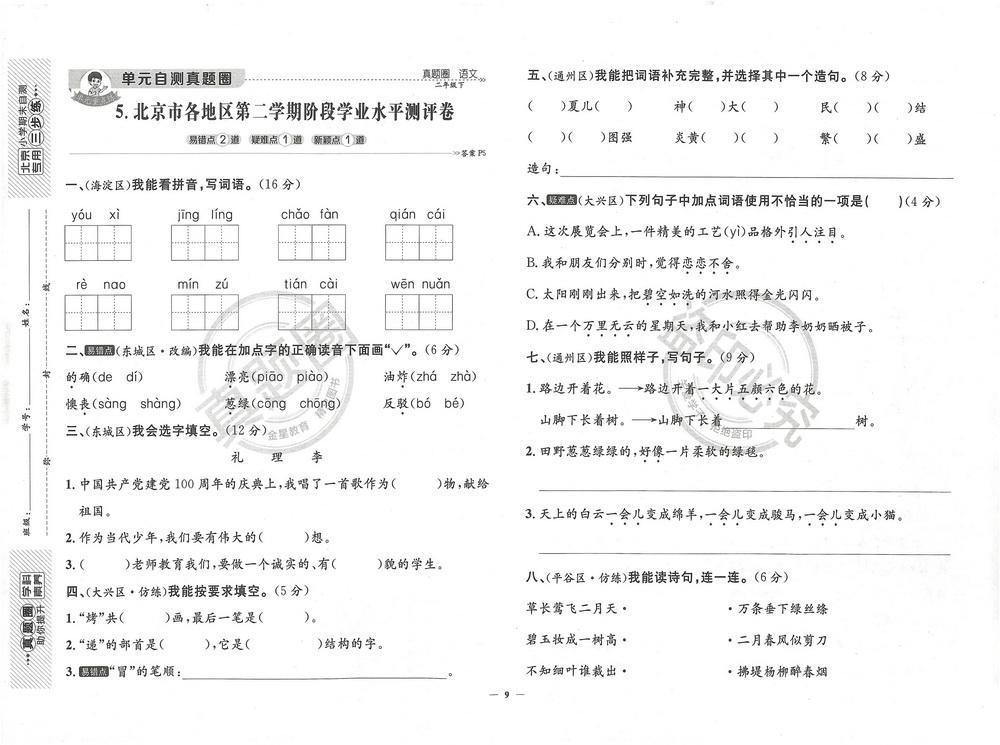 北京 小学期末自测
专用 三步练
姓名：
学号：
班级：
线
封
真题圈 学科
助你提升 素养
单元自测真题圈
真题圈 语文
二年级下
5. 北京市各地区第二学期阶段学业水平测评卷
易错点 2 道 疑难点 1 道 新颖点 1 道
>>答案P5
一、(海淀区)我能看拼音，写词语。(16分)
yóu xì jīng líng chǎo fàn qián cái
rè nao mín zú tián cài wēn nuǎn
二、易错点(东城区·改编)我能在加点字的正确读音下面画“✓”。(6分)
的确(de dí) 漂亮(piāo piào) 油炸(zhá zhà)
懊丧(sàng shàng) 葱绿(cōng chōng) 反驳(bó bé)
三、(东城区)我会选字填空。(12分)
礼 理 李
1. 中国共产党建党 100 周年的庆典上，我唱了一首歌作为( )物，献给
祖国。
2. 作为当代少年，我们要有伟大的( )想。
3. ( )老师教育我们，要做一个诚实的、有( )貌的学生。
四、(大兴区·仿练)我能按要求填空。(5分)
1. “烤”共( )画，最后一笔是( )。
2. “道”的部首是( )，它是( )结构的字。
3. 易错点“冒”的笔顺： 。
五、(通州区)我能把词语补充完整，并选择其中一个造句。(8分)
( )夏儿( ) 神( )大( ) 民( )( )结
( )( )图强 炎黄( )( ) 繁( )( )盛
造句： 。
六、疑难点(大兴区)下列句子中加点词语使用不恰当的一项是( )(4分)
A. 这次展览会上，一件精美的工艺(yì)品格外引人注目。
B. 我和朋友们分别时，觉得恋恋不舍。
C. 太阳刚刚出来，把碧空如洗的河水照得金光闪闪。
D. 在一个万里无云的星期天，我和小红去帮助李奶奶晒被子。
七、(通州区)我能照样子，写句子。(9分)
1. 路边开着花。→路边开着一大片五颜六色的花。
山脚下长着树。→山脚下长着 树。
2. 田野葱葱绿绿的，好像一片柔软的绿毯。
3. 天上的白云一会儿变成绵羊，一会儿变成骏马，一会儿变成小猫。
八、(平谷区·仿练)我能读诗句，连一连。(6分)
草长莺飞二月天· ·万条垂下绿丝绦
碧玉妆成一树高· ·二月春风似剪刀
不知细叶谁裁出· ·拂堤杨柳醉春烟
— 9 —
真题圈
金星教育
盗印必究
拒绝盗印